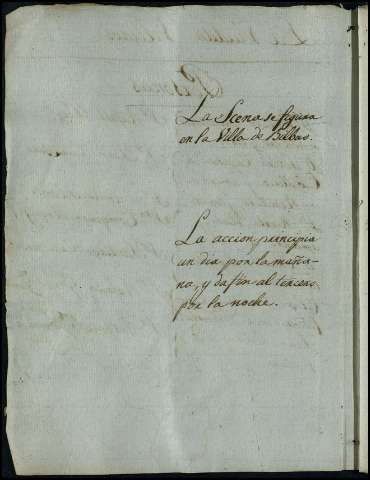 La Scena se figura
en la Villa de Bilbao.
La accion principia
un dia por la maña-
na, y da fin al tercero
por la noche.